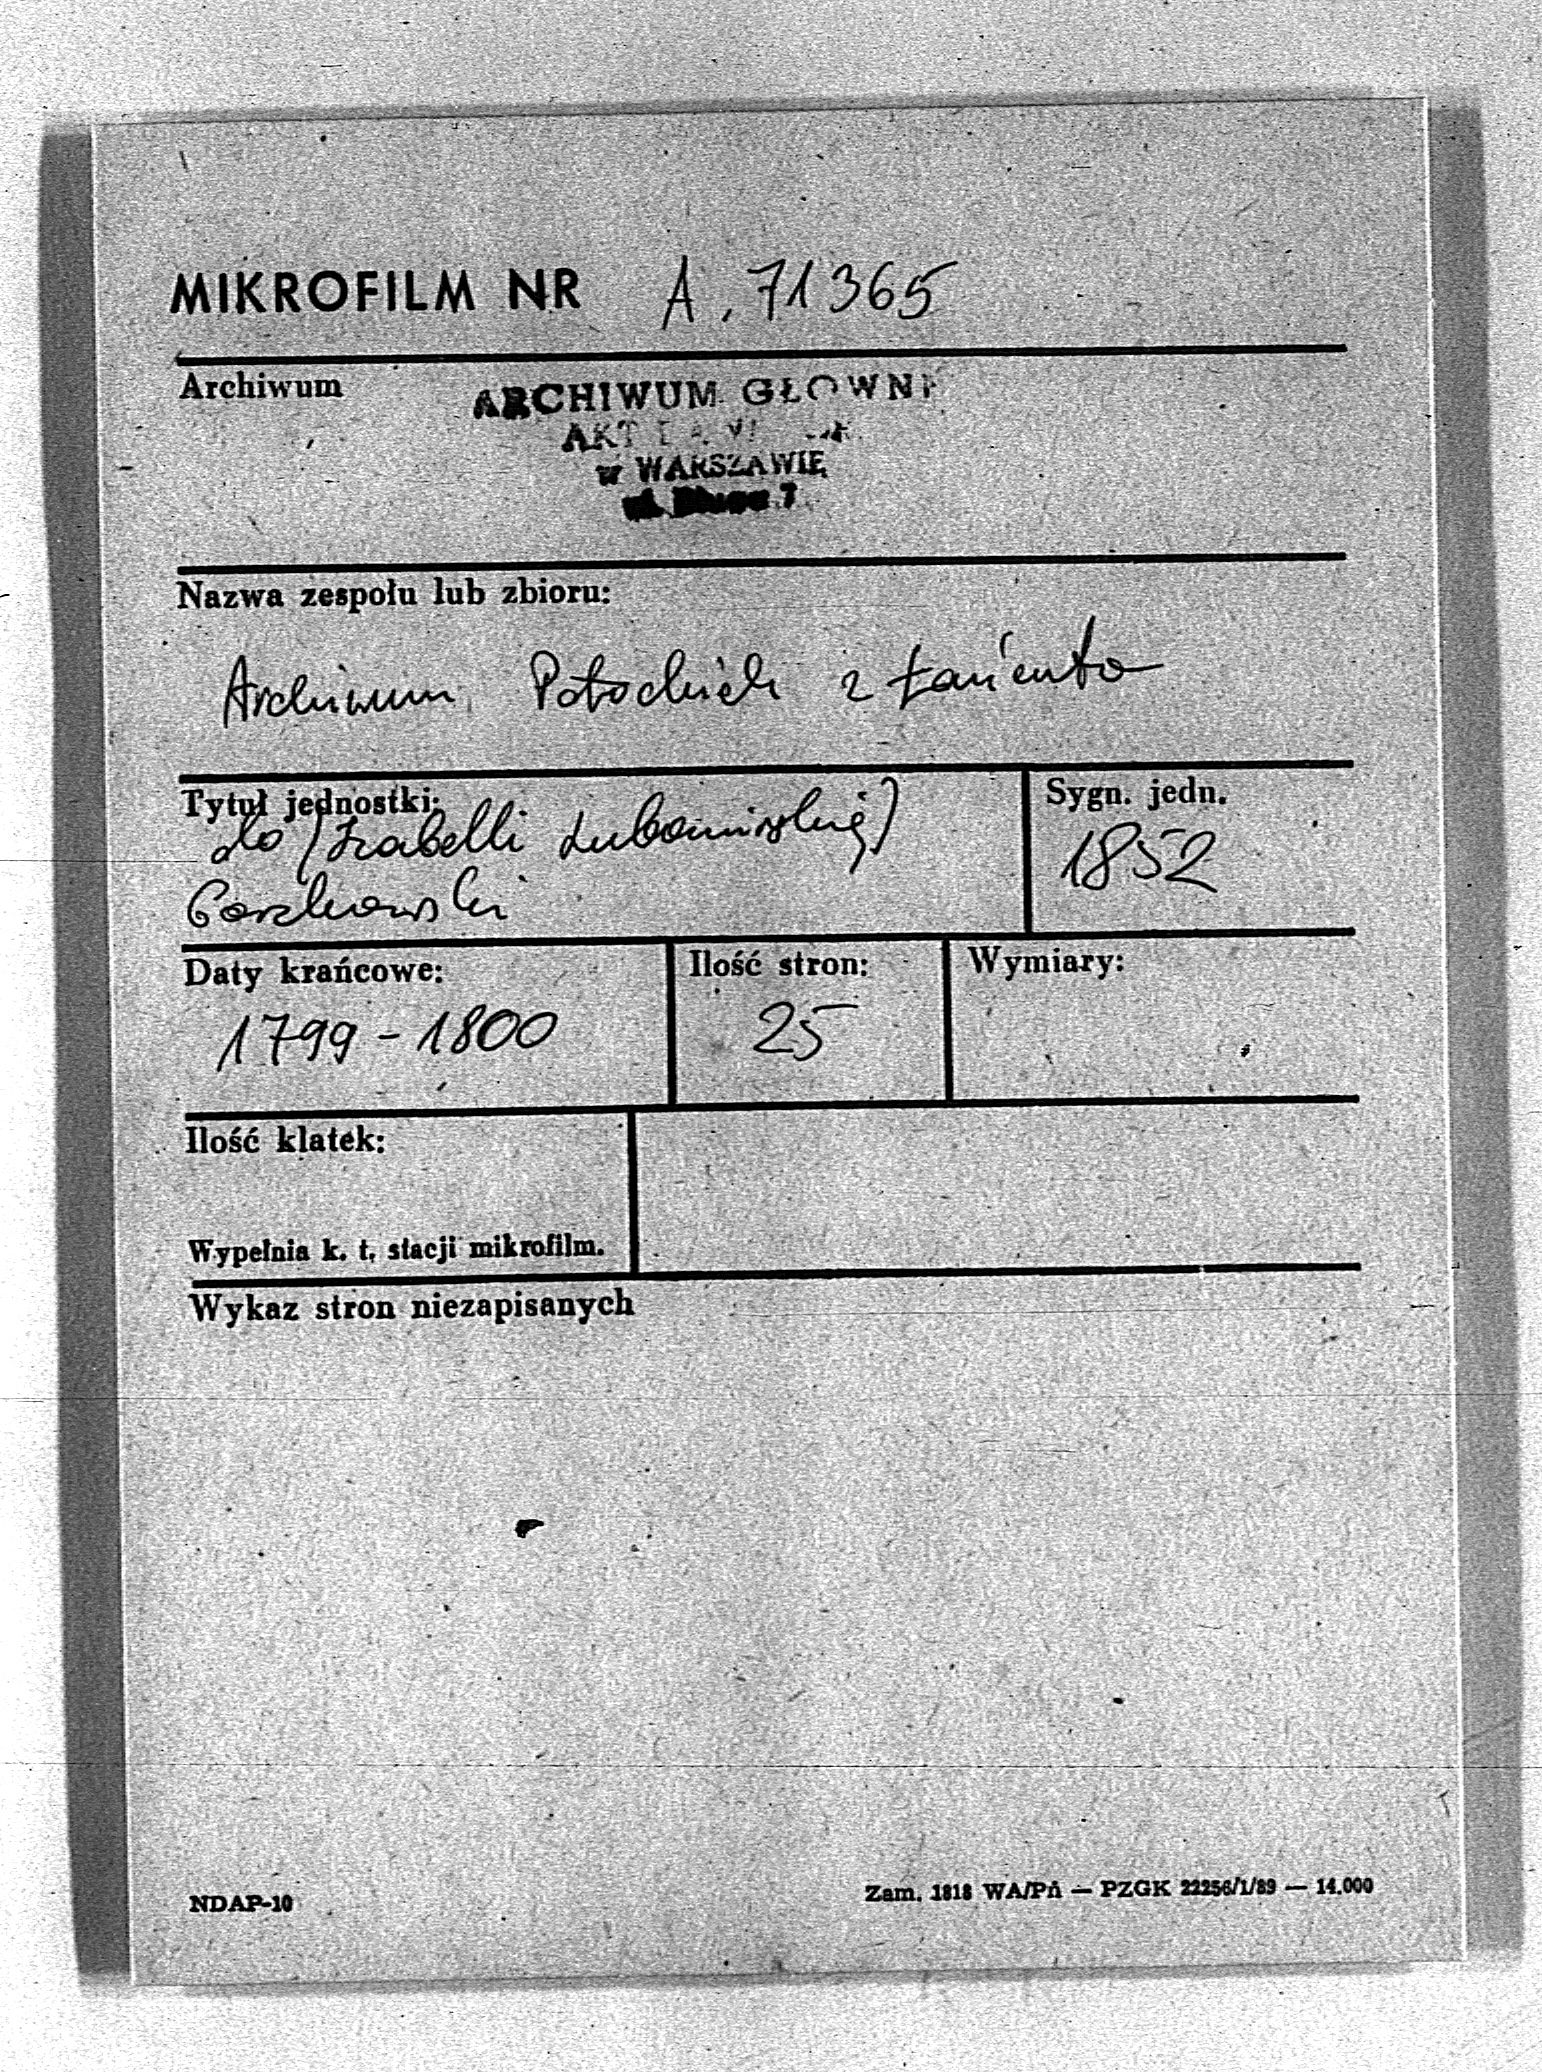 MIKROFILM NR A. 71365
Archiwum
ARCHIWUM GŁOWNE
AKT
w WARSZAWIE
ul. Długa 7
Nazwa zespołu lub zbioru:
Archiwum Potockich z Łańcuta
Tytuł jednostki:
do (Izabelli Lubomirskiej)
Gorzkowski
Sygn. jedn.
1852
Daty krańcowe:
1799 - 1800
Ilość stron:
25
Wymiary:
Ilość klatek:
Wypełnia k. t. stacji mikrofilm.
Wykaz stron niezapisanych
NDAP-10
Zam. 1818 WA/Pń — PZGK 22256/1/89 — 14.000